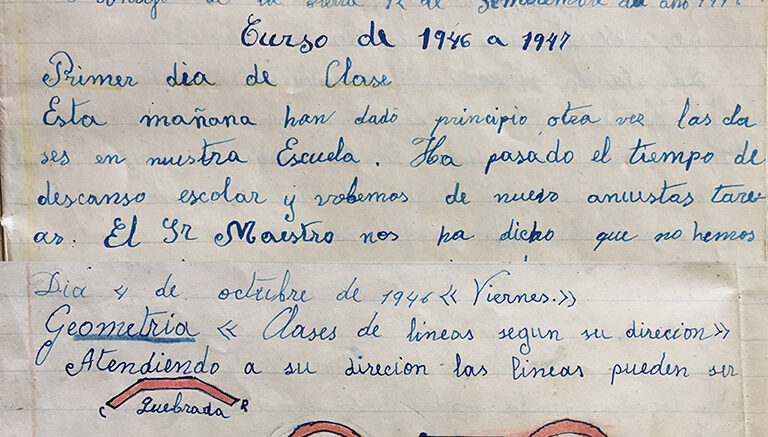 de la Sierra 12 de
Curso de 1946 a 1947
Primer dia de Clase
Esta mañana han dado principio otra vez las cla
ses en nuestra Escuela. Ha pasado el tiempo de
descanso escolar y volbemos de nuevo anuestas tare-
as. El Sr Maestro nos ha dicho que no hemos
Dia 4 de octubre de 1946 « Viernes.»
Geometria « Clases de lineas segun su direcion»
Atendiendo a su direcion las lineas pueden ser
C Quebrada R